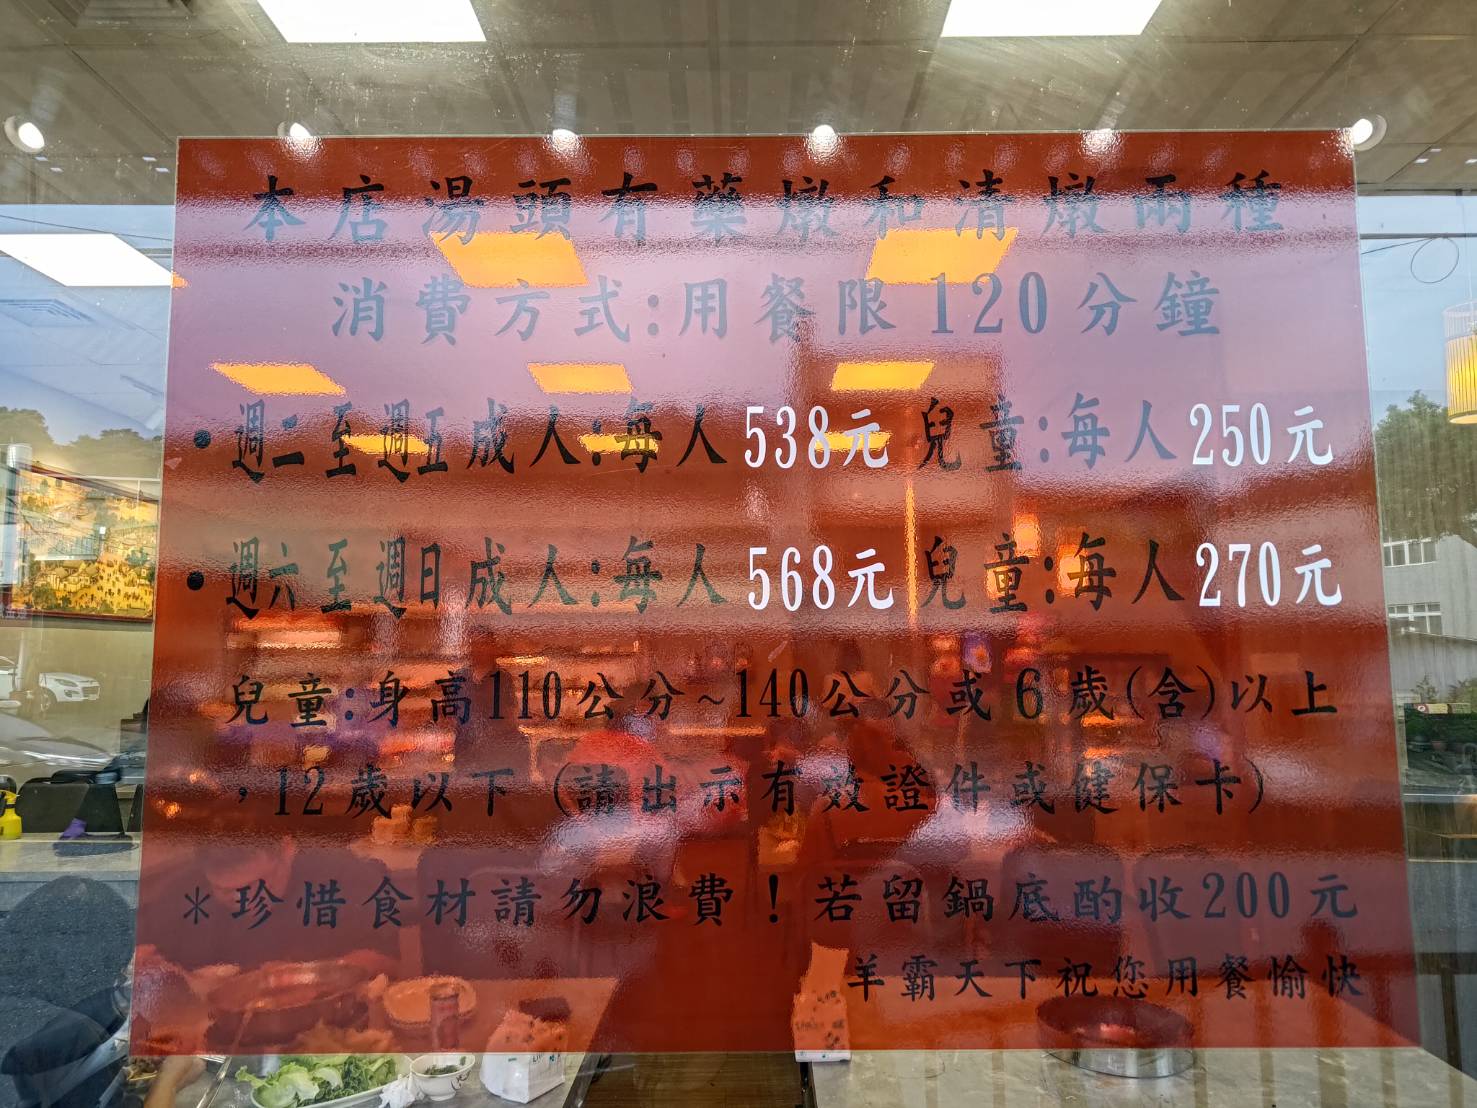 本店湯頭有藥燉和清燉兩種
消費方式:用餐限120分鐘
•週二至週五成人:每人538元 兒童:每人250元
•週六至週日成人:每人568元 兒童:每人270元
兒童:身高110公分~140公分或6歲(含)以上
，12歲以下(請出示有效證件或健保卡)
*珍惜食材請勿浪費！若留鍋底酌收200元
羊霸天下祝您用餐愉快